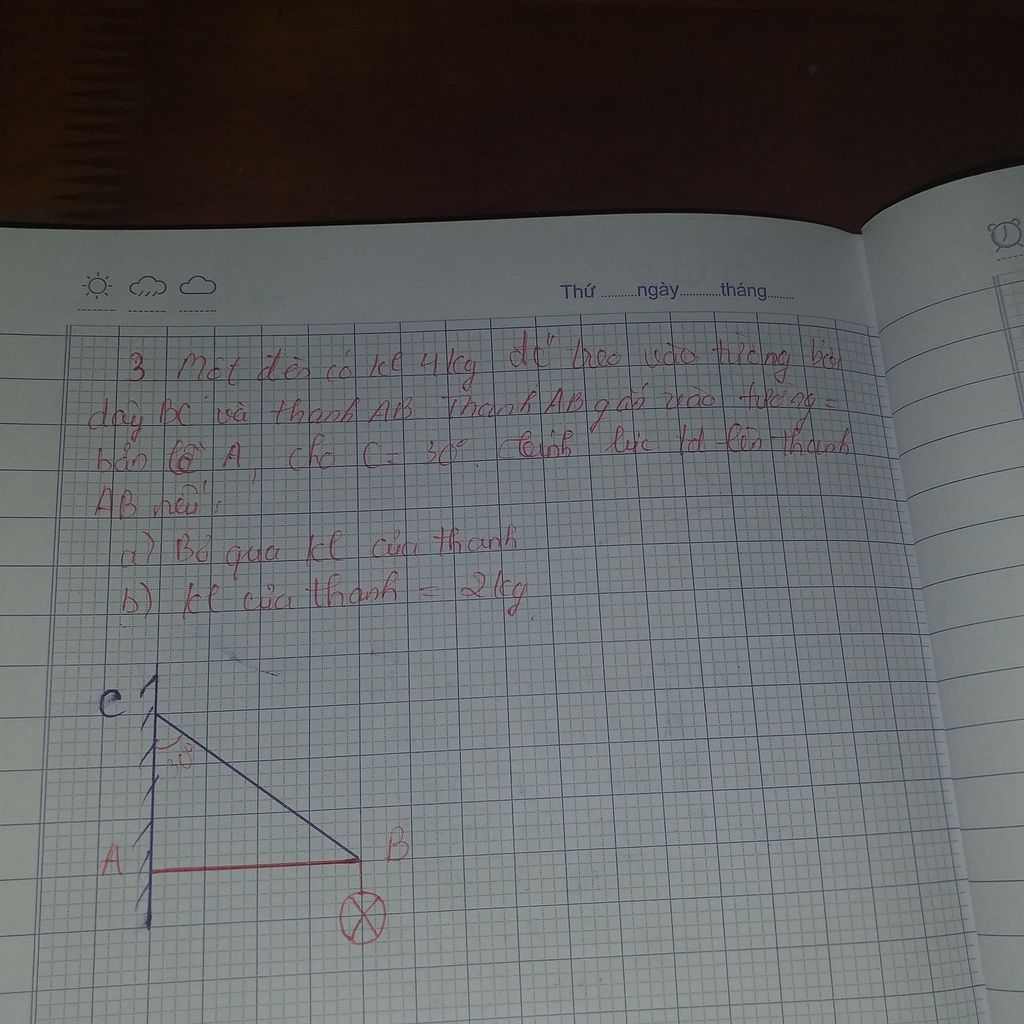 Thứ ..........ngày..........tháng.......
3 Một đèn có kl 4kg đc treo vào tường bởi
dây BC và thanh AB Thanh AB gắn vào tường =
bản lề A, cho C = 30°. Tính lực td lên thanh
AB nếu:
a) Bỏ qua kl của thanh
b) kl của thanh = 2kg.
C
30°
A
B